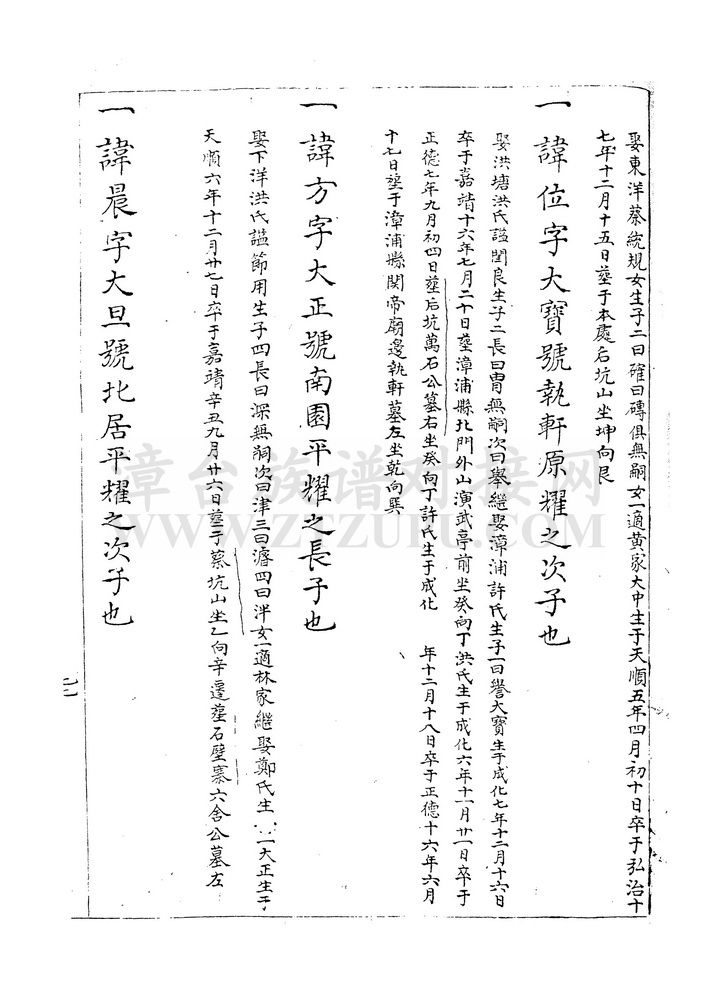 娶東洋蔡統規女生子二曰確曰磚俱無嗣女一適黃家大中生于天順五年四月初十日卒于弘治十
七年十二月十五日塟于本處后坑山坐坤向艮
一諱位字大寶號執軒原耀之次子也
娶洪塘洪氏諡閏良生子二長曰冑無嗣次曰舉繼娶漳浦許氏生子一曰譽大寶生于成化七年十二月十六日
卒于嘉靖十六年七月二十日塟漳浦縣北門外山演武亭前坐癸向丁洪氏生于成化六年十一月廿一日卒于
正德七年九月初四日塟后坑萬石公墓右坐癸向丁許氏生于成化 年十二月十八日卒于正德十六年六月
十七日塟于漳浦縣関帝廟邊執軒墓左坐乾向巽
一諱方字大正號南園平耀之長子也
娶下洋洪氏諡節用生子四長曰深無嗣次曰津三曰濬四曰泮女一適林家繼娶鄭氏生 一大正生于
天順六年十二月廿七日卒于嘉靖辛丑九月廿六日塟于蔡坑山坐乙向辛遷塟石壁寨六舍公墓左
一諱晨字大旦號北居平耀之次子也
漳台族谱对接网
WWW.ZTZUPU.COM